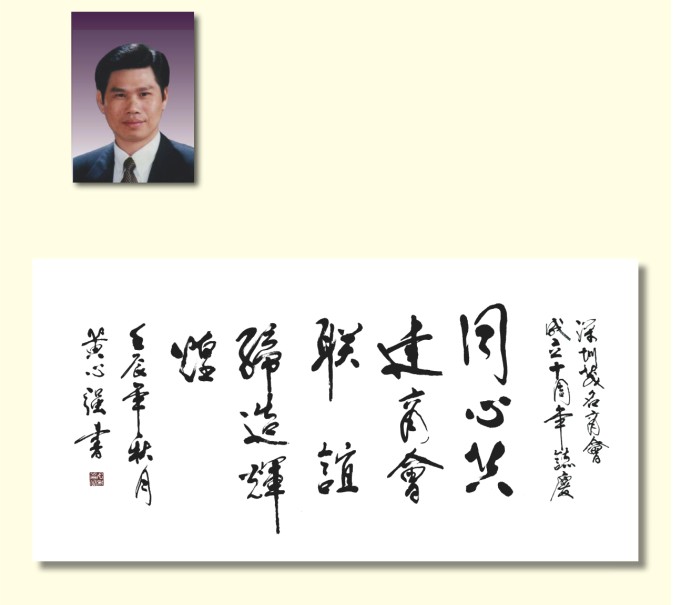 深圳茂名商會
成立十周年誌慶
同心共
建商會
聯誼
締造輝
煌
壬辰年秋月
黄心强書